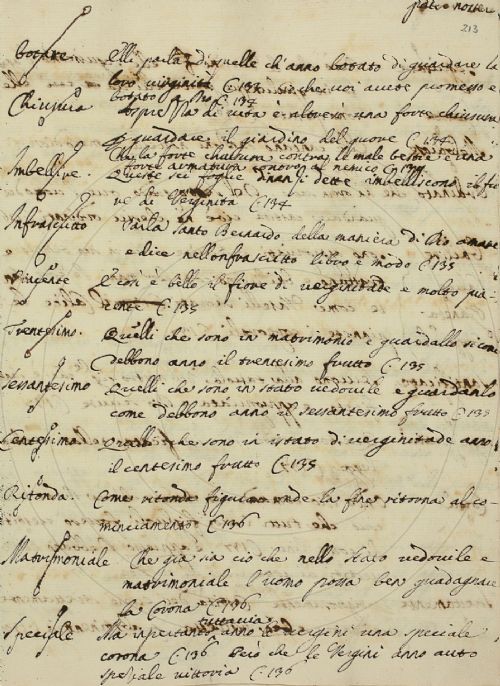 pater noster
213
botare Elli parla di quelle ch' anno botato di guardare la
loro virginità C. 133
botato a Dio C. 134
Chiusura Aspressa di vita è altresi una forte chiusura
a guardare il giardino del cuore C. 134
forte chiusura contra le male bestie e una
forte armatura
Imbellire Queste sei foglie inanzi dette imbelliscono il fio
re di Verginità C. 134
Infrascritto Parla Santo Bernardo della maniera di Dio amare
e dice nell onfrascritto libro e modo C. 135
Piacente E così è bello il fiore di verginitade e molto pia
cente C. 135
Trentesimo. Quelli che sono in matrimonio e guardallo sicome
debbono anno il trentesimo frutto C. 135
Sessantesimo Quelli che sono in stato vedovile e guardanlo
come debbono anno il sessantesimo frutto C. 135
Centesimo Quelli che sono in istato di verginitade anno
il centesimo frutto C. 135
Ritonda. Come ritonda figura ende la fine ritorna al co-
minciamento C. 136
Matrimoniale Che gia sia cio che nello stato vedovile e
matrimoniale l'uomo possa ben guadagnare
la Corona C. 136
tuttavia
Speciale Ma inpertanto anno le vergini una speciale
corona C. 136 Però che le Vergini anno auto
speziale vittoria C. 136